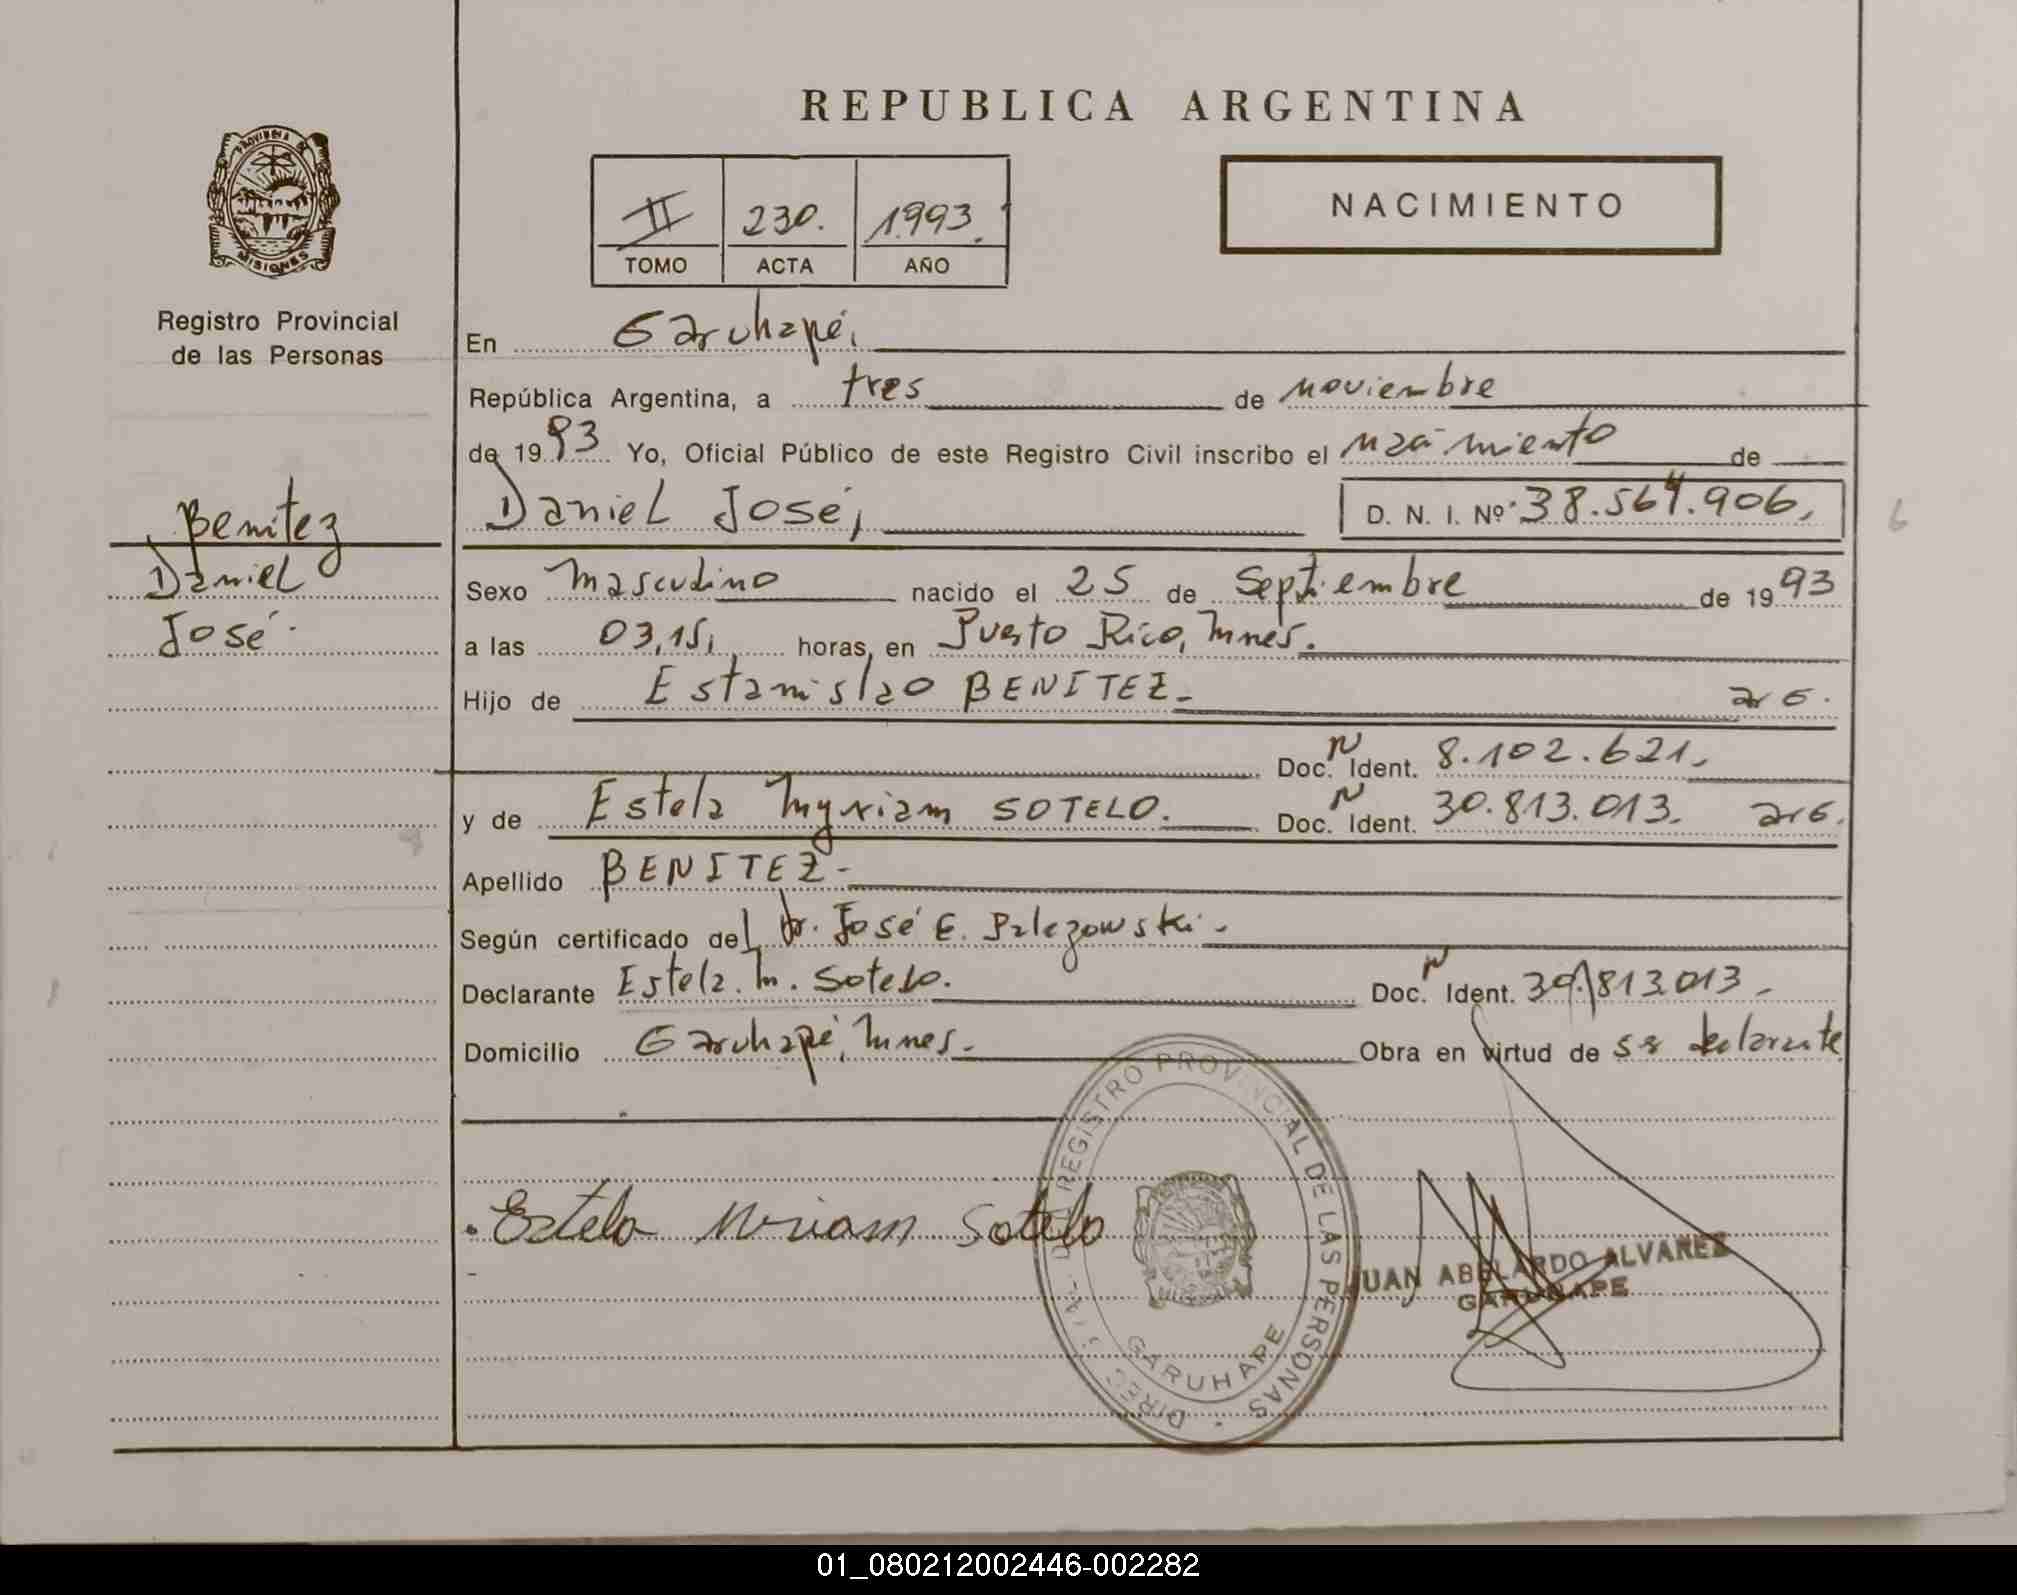 REPUBLICA ARGENTINA
PROVINCIA DE
MISIONES
Registro Provincial
de las Personas
Benitez
Daniel
José.
II 230. 1.993.
TOMO ACTA AÑO
NACIMIENTO
En Garuhapé,
República Argentina, a tres de noviembre
de 1993 Yo, Oficial Público de este Registro Civil inscribo el nacimiento de
Daniel José, D. N. I. Nº 38.564.906,
Sexo Masculino nacido el 25 de Septiembre de 1993
a las 03,15, horas, en Puerto Rico, Mnes.
Hijo de Estanislao BENITEZ- arg.
Doc. N Ident. 8.102.621,
y de Estela Myriam SOTELO. Doc. N Ident. 30.813.013. arg.
Apellido BENITEZ-
Según certificado del Dr. José E. Palezowski-
Declarante Estela M. Sotelo. Doc. N Ident. 30.813.013-
Domicilio Garuhapé, Mnes.- Obra en virtud de ser declarante
Estela Miriam Sotelo
REGISTRO PROVINCIAL DE LAS PERSONAS
GARUHAPE
JUAN ABELARDO ALVAREZ
GARUHAPE
01_080212002446-002282